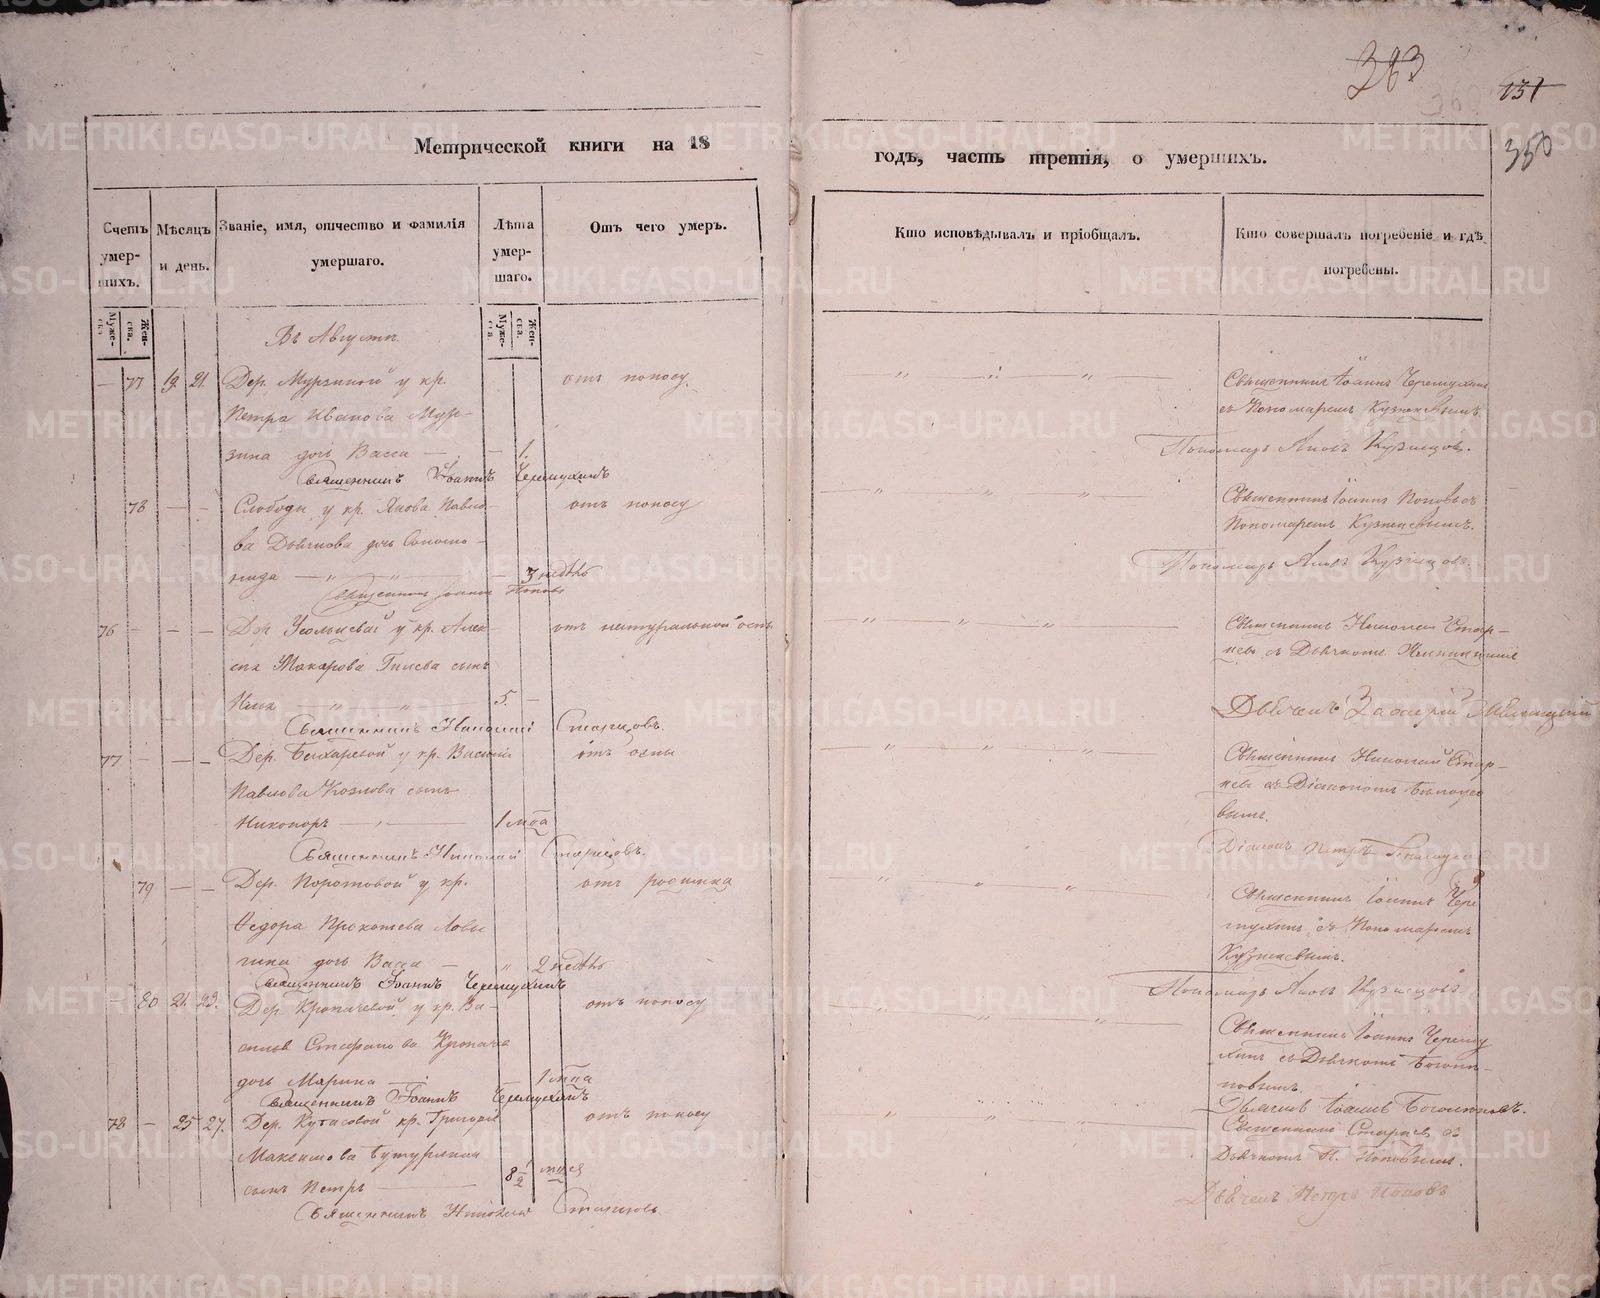 383
131
350
Метрической книги на 18
годъ, часть третія, о умершихъ.
Счетъ умер- шихъ.
Мѣсяцъ и день.
Званіе, имя, отчество и фамилія умершаго.
Лѣта умер- шаго.
Отъ чего умеръ.
Кто исповѣдывалъ и пріобщалъ.
Кто совершалъ погребеніе и гдѣ погребены.
Муже- ска.
Жен- ска.
Муже- ска.
Жен- ска.
Въ Августѣ.
— 77 19. 21. Дер. Мурзиной у кр.
отъ поносу.
Священникъ Іоаннъ Черемухинъ
Петра Иванова Мур-
съ Пономаремъ Кузнецовымъ
зина дочь Васса — 1.
Пономарь Яковъ Кузнецовъ.
Священникъ Іоаннъ Черемухинъ
78 — — Слободы у кр. Якова Павло-
отъ поносу
Священникъ Іоаннъ Поповъ съ
ва Дьячкова дочь Соломо-
Пономаремъ Кузнецовымъ.
нида — 3 недѣль
Пономарь Яковъ Кузнецовъ.
Священникъ Іоаннъ Поповъ
76 — — — Дер. Усольцевой у кр. Алек-
отъ натуральной оспы
Священникъ Николай Стар-
сѣя Макарова Гилева сынъ
цевъ съ Дьячкомъ
Илья — 5. —
Дьячекъ
Священникъ Николай Старцовъ.
77 — — — Дер. Бехаревой у кр. Василія
отъ оспы
Священникъ Николай Стар-
Павлова Козлова сынъ
цевъ съ Діакономъ
Никоноръ — 1 мца
вымъ.
Священникъ Николай Старцовъ.
Діаконъ Петръ
79 — — Дер. Коротовой у кр.
отъ родимка
Священникъ Іоаннъ Чере
Ѳедора Прокопьева Ловы
мухинъ съ Пономаремъ
гина дочь Васса — 2 недѣль
Кузнецовымъ.
Священникъ Іоаннъ Черемухинъ
Пономарь Яковъ Кузнецовъ
— 80 21. 23. Дер. Кропачевой у кр. Ва-
отъ поносу
Священникъ Іоаннъ Черему
силья Стефанова Кропача
хинъ съ Дьячкомъ Боголѣ-
дочь Марина — 1 мца
повымъ.
Священникъ Іоаннъ Черемухинъ
Дьячекъ Іоаннъ Боголѣповъ.
78 — 25 27. Дер. Кутасовой кр. Григорія
отъ поносу
Священникъ Старцевъ съ
Максимова Бутурлина
Дьячкомъ П. Поповымъ.
сынъ Петръ — 8 1/2 мцся
Дьячекъ Петръ Поповъ
Священникъ Николай Старцовъ
METRIKI.GASO-URAL.RU